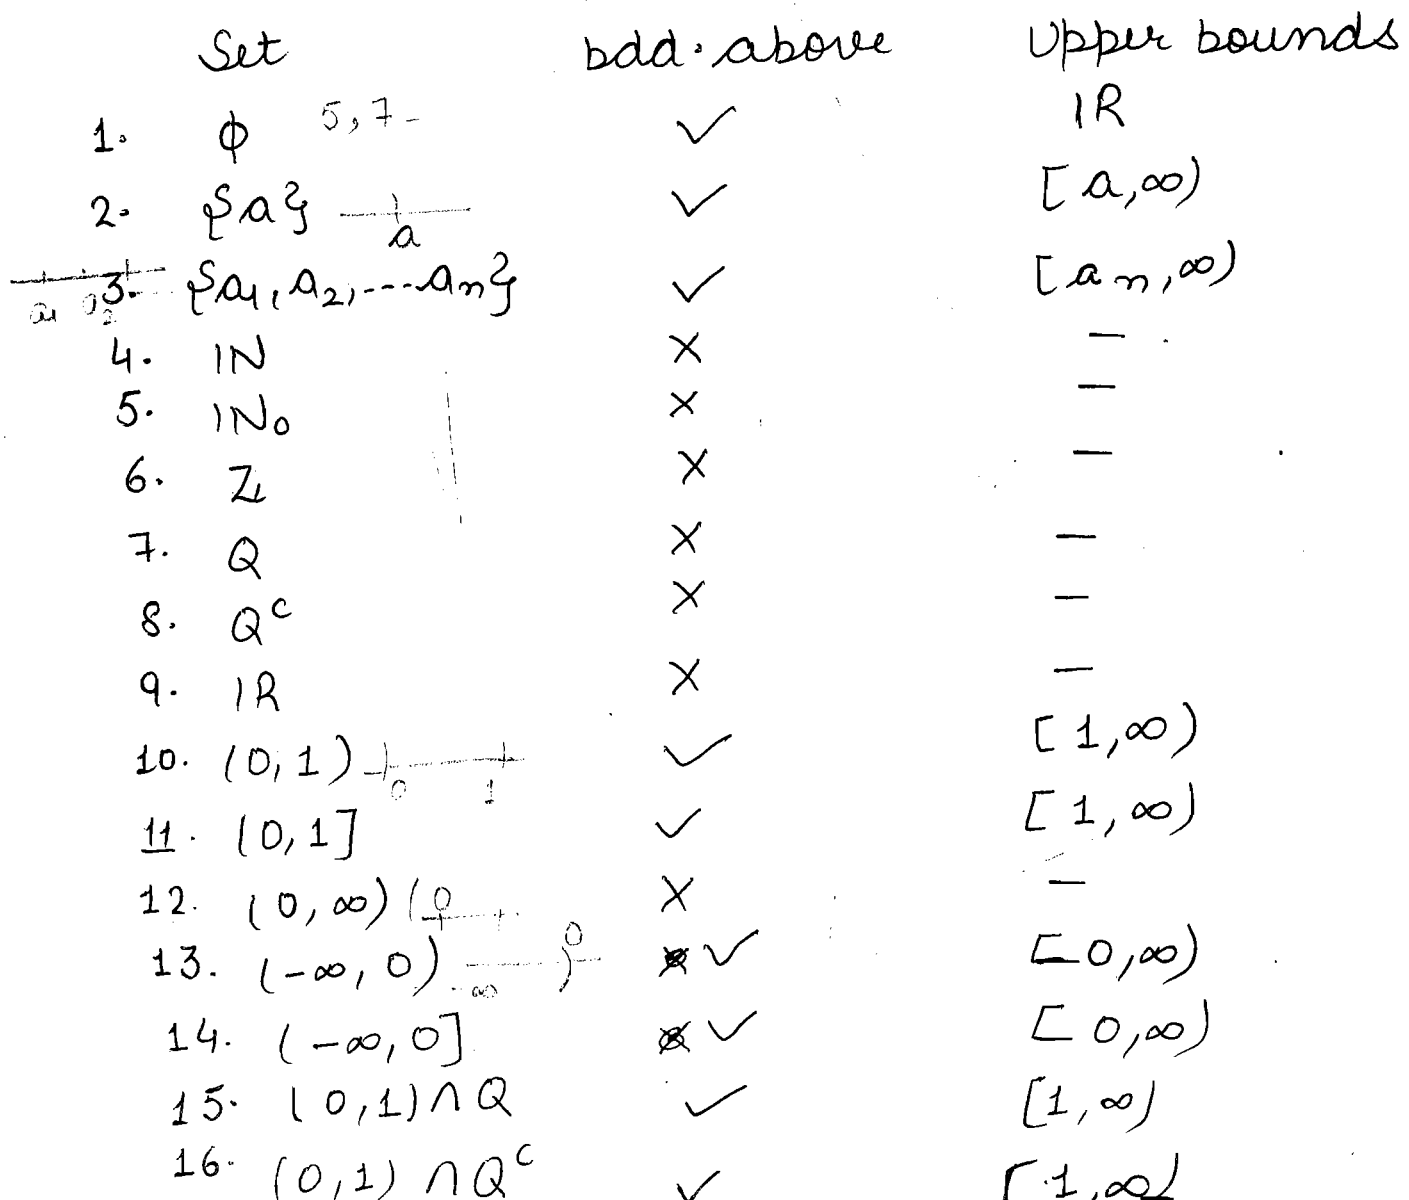 Set bdd. above Upper bounds
1. ϕ 5,7- ✓ IR
2. {a} a ✓ [a,∞)
3. {a1, a2,---an} a1 a2 ✓ [an,∞)
4. IN × —
5. INo × —
6. Z × —
7. Q × —
8. Q^c × —
9. IR × —
10. (0,1) 0 1 ✓ [1,∞)
11. (0,1] ✓ [1,∞)
12. (0,∞) ( 0 × —
13. (-∞,0) -∞ 0 ✓ [0,∞)
14. (-∞,0] ✓ [0,∞)
15. (0,1)∩Q ✓ [1,∞)
16. (0,1)∩Q^c ✓ [1,∞)